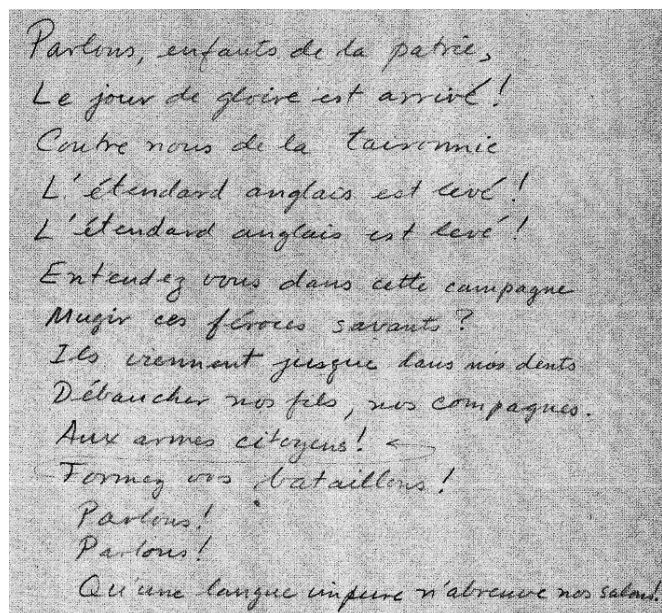 Parlons, enfants de la patrie,
Le jour de gloire est arrivé !
Contre nous de la
L'étendard anglais est levé !
L'étendard anglais est levé !
Entendez vous dans cette campagne
Mugir ces féroces savants ?
Ils viennent jusque dans nos dents
Débaucher nos fils, nos compagnes.
Aux armes citoyens !
Formez vos bataillons !
Parlons !
Parlons !
Qu'une langue impure n'abreuve nos salons !